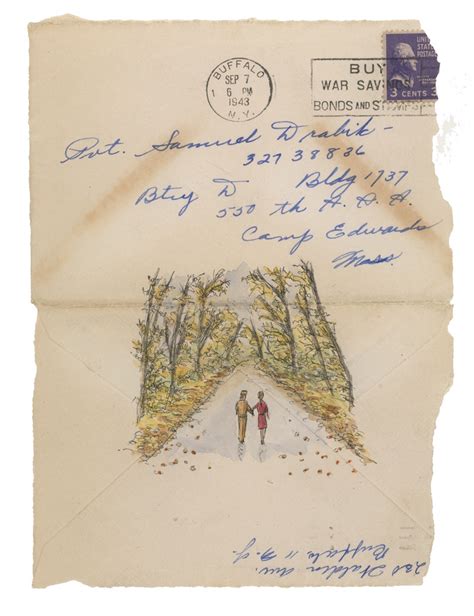 BUFFALO
SEP 7
1 6 PM
1943
N.Y.
BUY
WAR SAVINGS
BONDS AND
UNITED
STATES
POSTAGE
3 CENTS 3
Pvt. Samuel Drabik-
32738836
Btry D Bldg 1737
550 th A.A.A.
Camp Edwards
Mass.
Walden Ave.
Buffalo 11 N.Y.